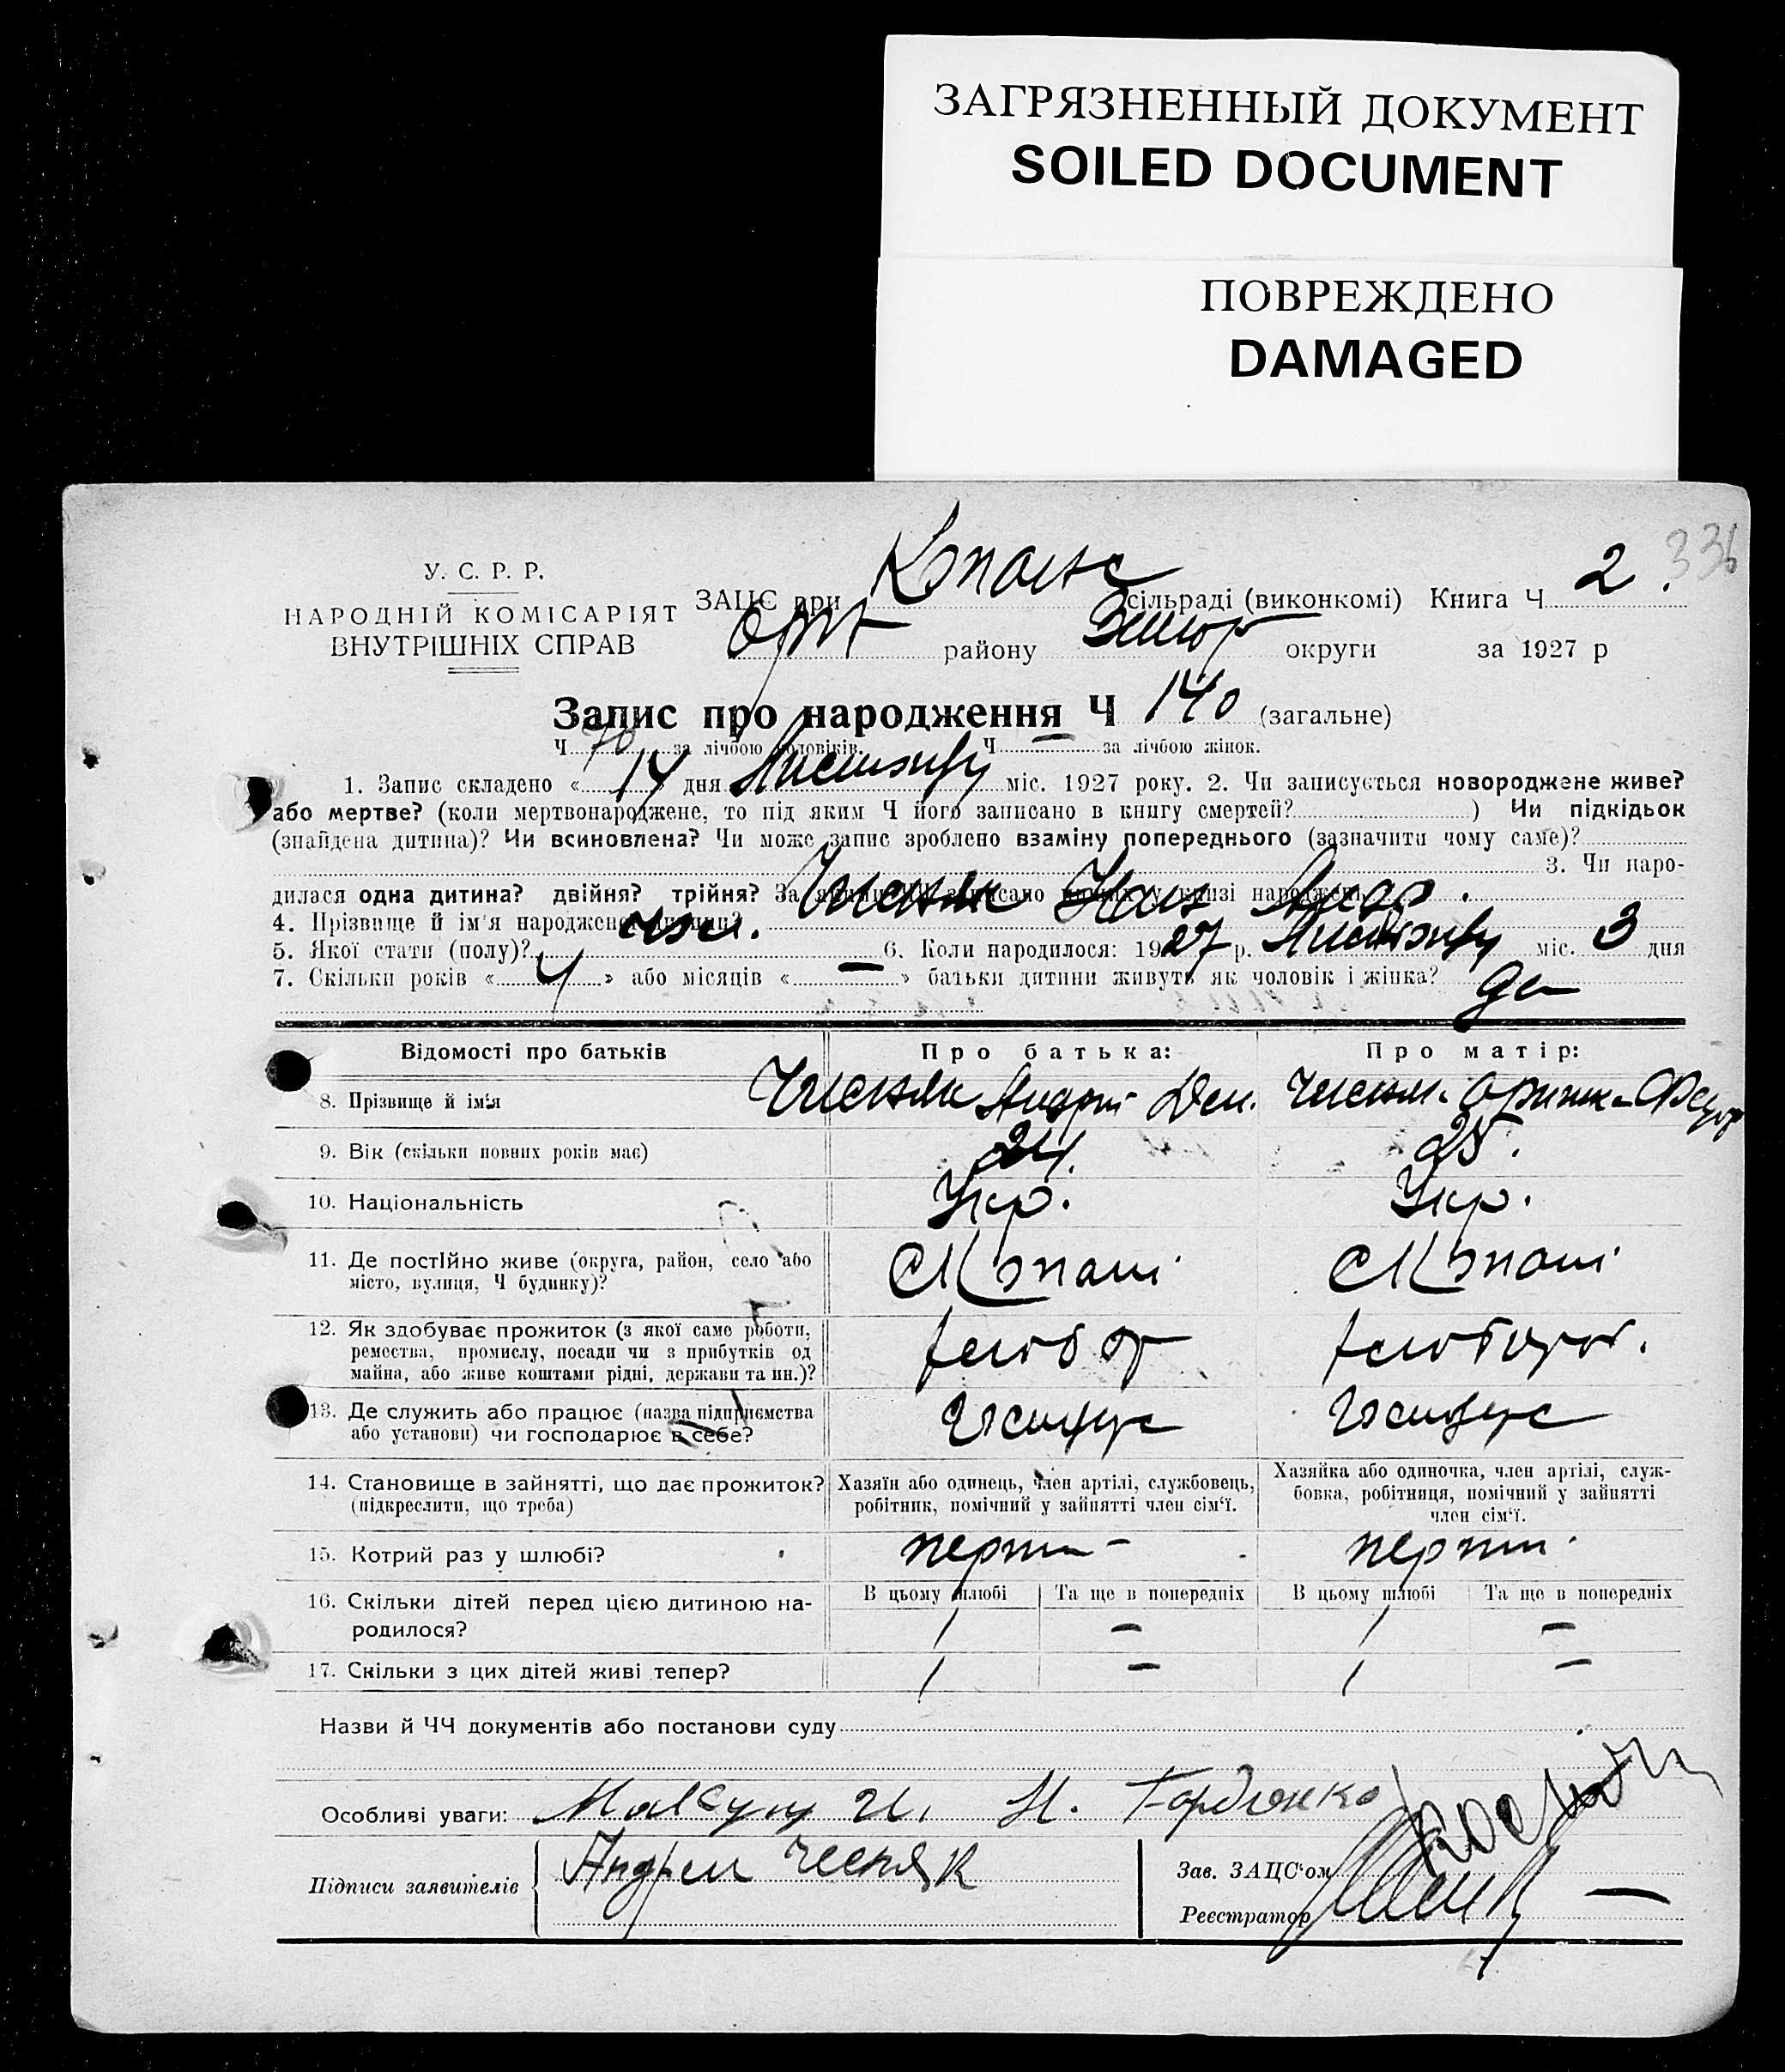 ЗАГРЯЗНЕННЫЙ ДОКУМЕНТ
SOILED DOCUMENT
ПОВРЕЖДЕНО
DAMAGED
336
У. С. Р. Р.
НАРОДНІЙ КОМІСАРІЯТ
ВНУТРІШНІХ СПРАВ
ЗАЦС при сільраді (виконкомі) Книга Ч 2
Оріх району Запор округи за 1927 р
Запис про народження Ч 140 (загальне)
Ч 70 за лічбою чоловіків. Ч — за лічбою жінок.
1. Запис складено « 14 » дня Листопаду міс. 1927 року. 2. Чи записується новороджене живе?
або мертве? (коли мертвонароджене, то під яким Ч його записано в книгу смертей? ) Чи підкідьок
(знайдена дитина)? Чи всиновлена? Чи може запис зроблено взаміну попереднього (зазначити чому саме)?
3. Чи наро-
дилася одна дитина? двійня? трійня? За якими ЧЧ записано инших у книзі народжень
4. Прізвище й ім'я народженої дитини? Чисняк Іван Андр.
5. Якої стати (полу)? чол. 6. Коли народилося: 1927 р. Листопаду міс. 3 дня
7. Скільки років « 4 » або місяців « — » батьки дитини живуть як чоловік і жінка? да
Відомості про батьків Про батька: Про матір:
8. Прізвище й ім'я Чисняк Андрій Дем. Чисняк Оришка Федор
9. Вік (скільки повних років має) 24. 25.
10. Національність Укр. Укр.
11. Де постійно живе (округа, район, село або
місто, вулиця, Ч будинку)? с Копані с Копані
12. Як здобуває прожиток (з якої саме роботи,
ремества, промислу, посади чи з прибутків од
майна, або живе коштами рідні, держави та ин.)?
13. Де служить або працює (назва підприємства
або установи) чи господарює в себе?
14. Становище в зайнятті, що дає прожиток?
(підкреслити, що треба)
Хазяїн або одинець, член артілі, службовець,
робітник, помічний у зайнятті член сім'ї.
Хазяйка або одиночка, член артілі, служ-
бовка, робітниця, помічний у зайнятті
член сім'ї.
15. Котрий раз у шлюбі? перший перший
16. Скільки дітей перед цією дитиною на-
родилося?
В цьому шлюбі Та ще в попередніх В цьому шлюбі Та ще в попередніх
1 — 1 —
17. Скільки з цих дітей живі тепер? 1 — 1 —
Назви й ЧЧ документів або постанови суду
Особливі уваги: И. Гордіэнко
Підписи заявителів Андрей Чесняк
Зав. ЗАЦС'ом
Реєстратор